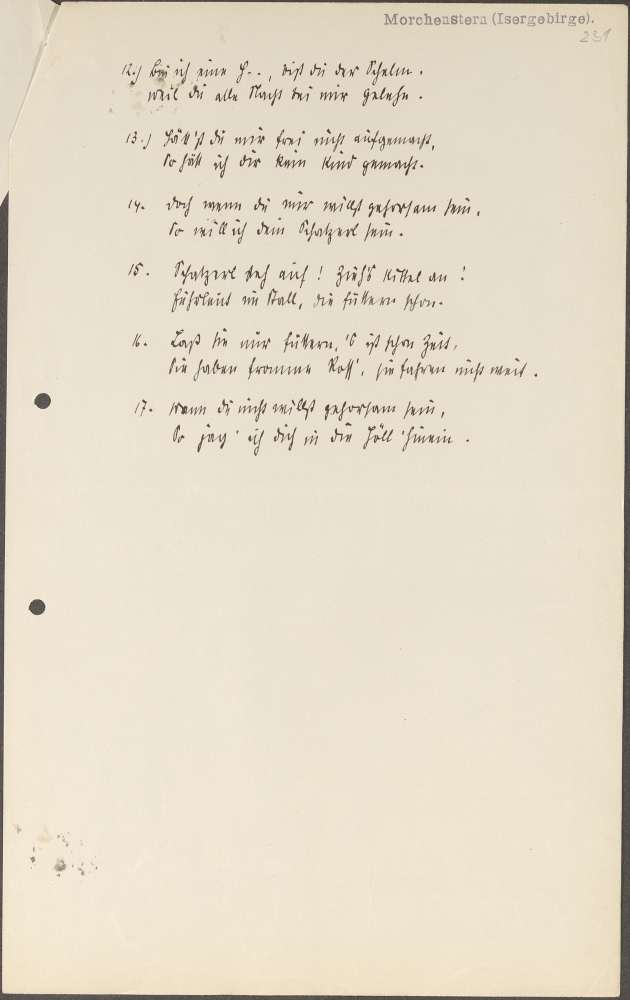 Morchenstern (Isergebirge).
231
12.) Bin ich eine H.., bist du der Schelm.
weil du alle Nacht bei mir gelehn.
13.) Hätt'st du mir frei nicht aufgemacht,
So hätt ich dir kein Kind gemacht.
14. Doch wenn du mir willst gehorsam sein,
So will ich dein Schatzerl sein.
15. Schatzerl steh auf! Zieh's Kittel an!
Fuhrleut im Stall, die füttern schon.
16. Laß sie nur füttern, 's ist schon Zeit,
Sie haben fromme Ross', sie fahren nicht weit.
17. Wenn du nicht willst gehorsam sein,
So jag' ich dich in die Höll 'hinein.